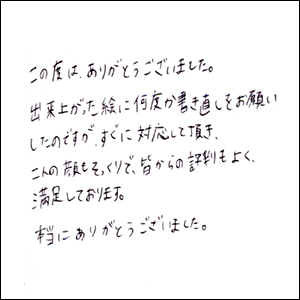 この度は、ありがとうございました。
出来上がった絵に何度か書き直しをお願い
したのですが、すぐに対応して頂き、
二人の顔もそっくりで、皆からの評判もよく、
満足しております。
本当にありがとうございました。